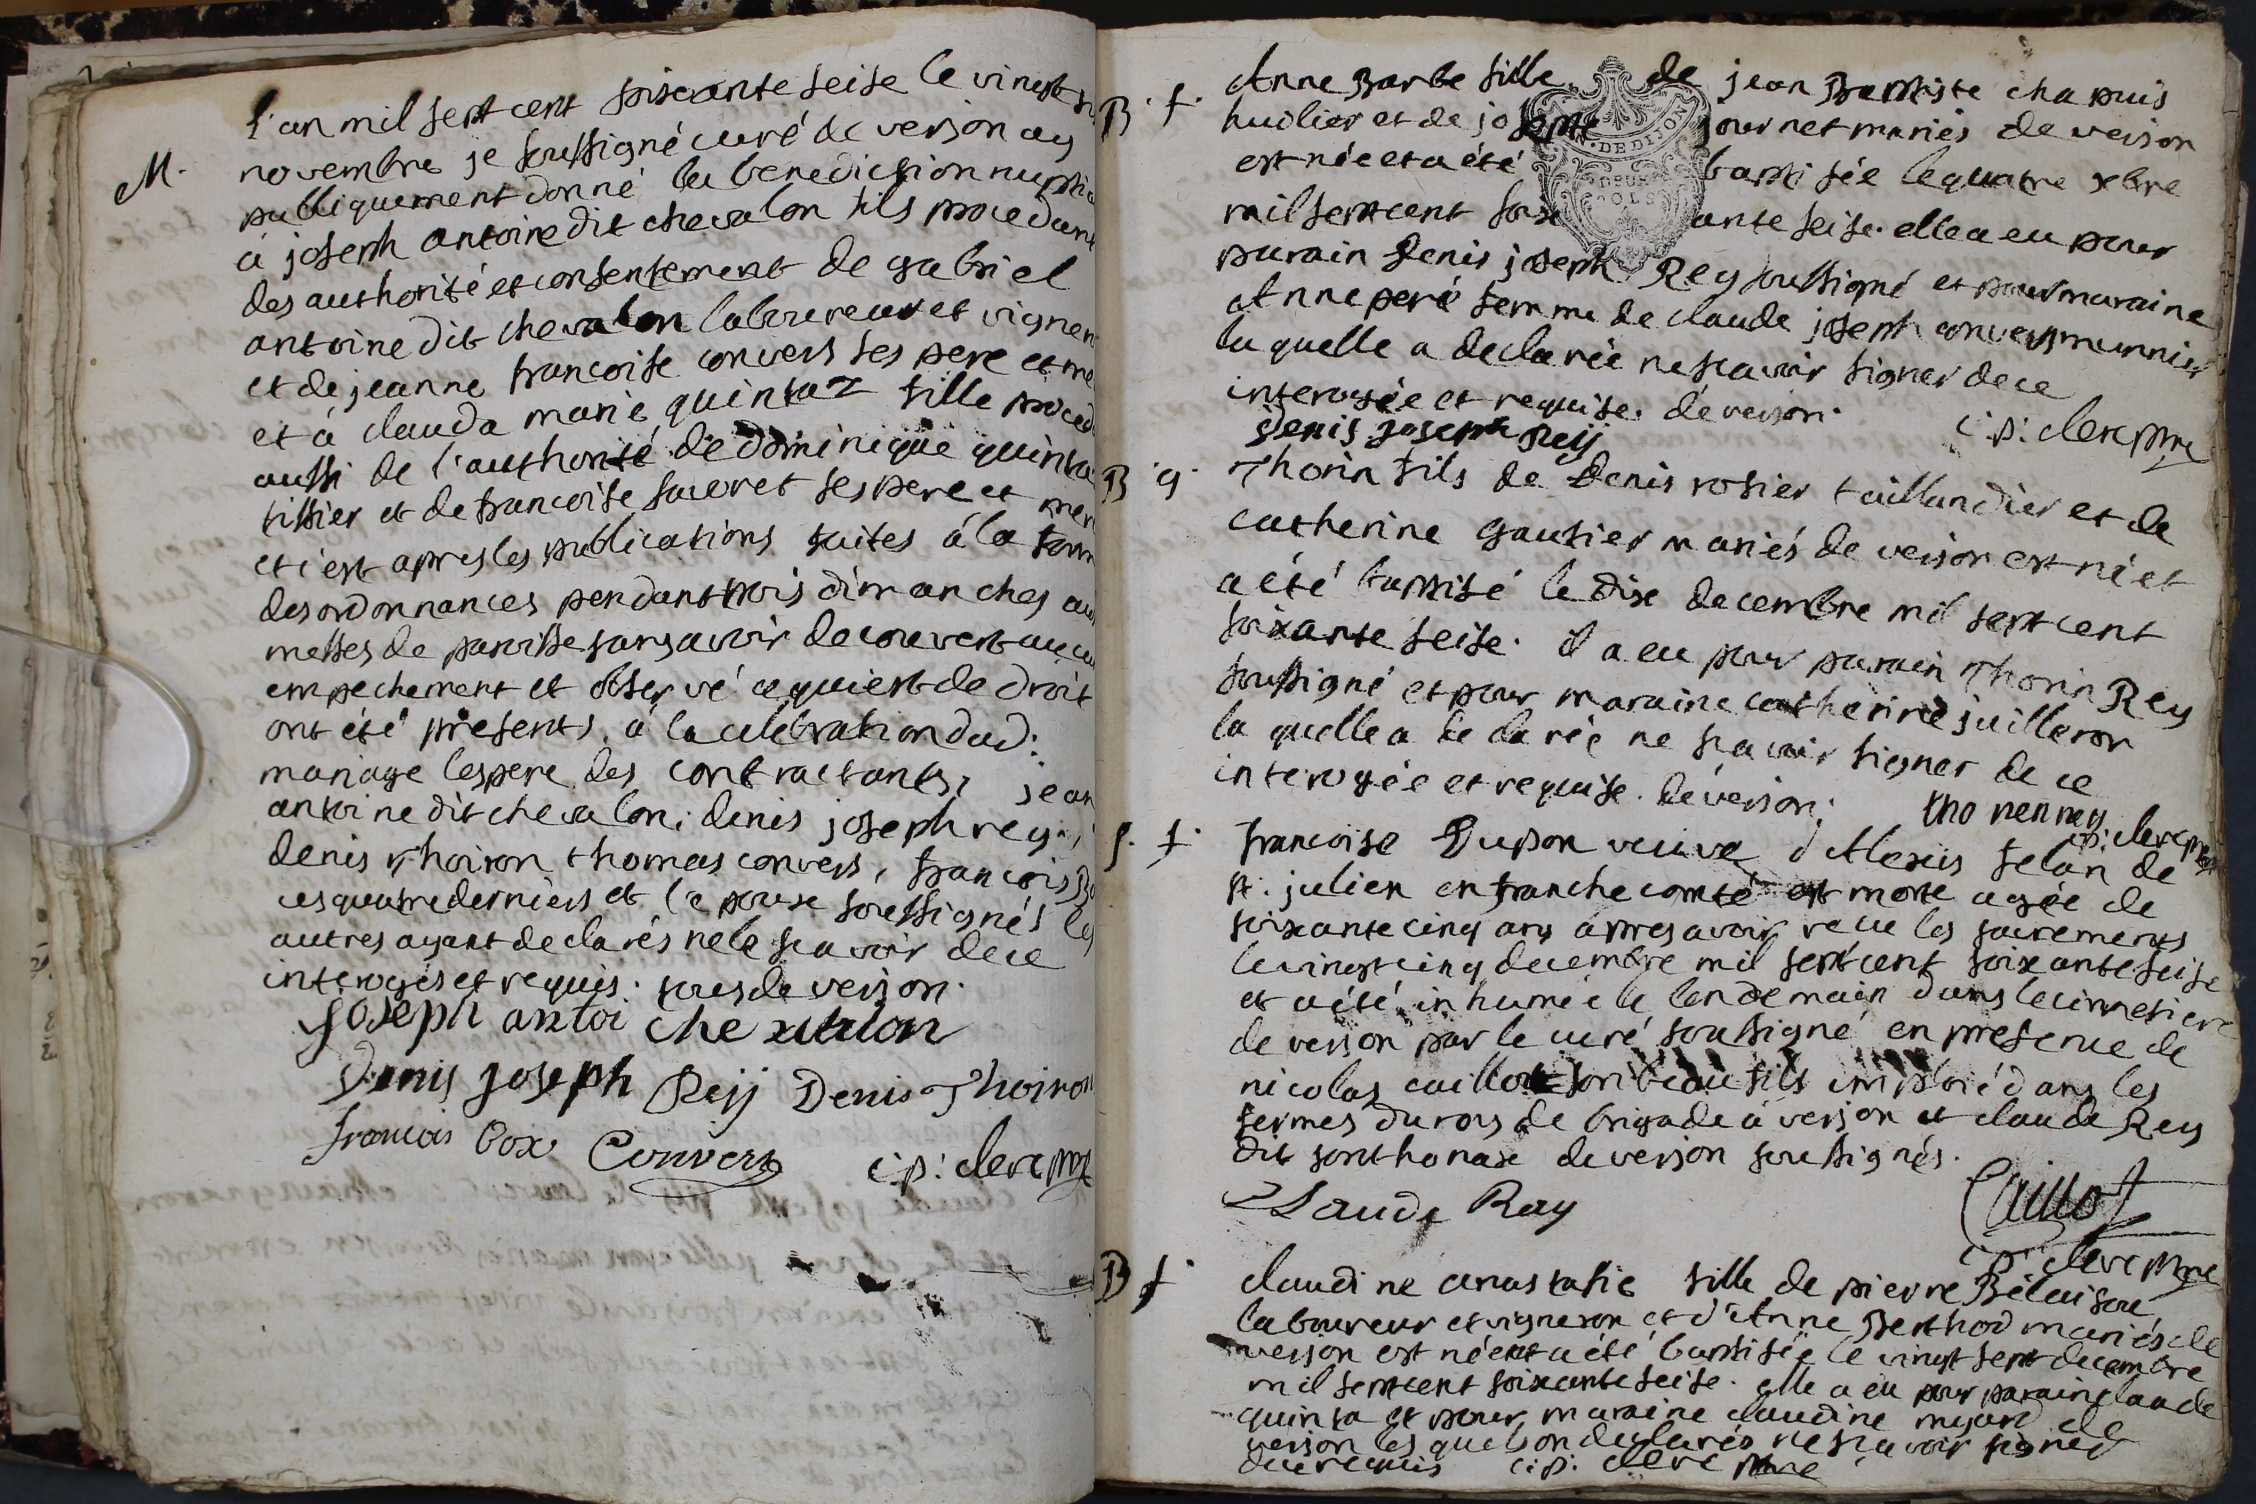 M.
L'an mil sept cent soixante seise le vingt
novembre je soussigné curé de versom ay
publiquement donné la benediction nuptia
à joseph antoine dit chevalon fils procedant
des authorité et consentement de gabriel
antoine dit chevalon laboureur et vigner
et de jeanne francoise convers ses pere et me
et à clauda marie quintaz fille proced
aussi de l'authorité de dominique quinta
tissier et de francoise saouret ses pere et mer
et c'est apres les publications faites à la form
des ordonnances pendant trois dimanches au
messes de paroisse sans avoir decouvert aucu
empechement et observé ce qui est de droit
ont été presents, à la celebration dud:
mariage les pere des contractants, jean
antoine dit chevalon, denis joseph rey,
denis thoiron thomas convers, francois Bo
ces quatre derniers et l'epoux soussignés les
autres ayant declarés ne le scavoir de ce
interogés et requis. sous de versom.
joseph antoi chevalon
Denis joseph Reyj Denis Thoiron
francois box Convers c:p: clerc ptre
B. f. Anne Barbe fille de jean Baptiste chapuis
huilier et de josephe journet mariés de versom
est née et a été baptisée le quatre xbre
mil sept cent soixante seise. elle a eu pour
parain Denis joseph Rey soussigné et pour maraine
Anne peré femme de claude joseph convers munnier
la quelle a declarée ne scavoir signer de ce
interogée et requise. de versom.
denis joseph Reij c:p: clerc ptre
B. g. Thorin fils de Denis rosier taillandier et de
catherine gautier mariés de versom est né et
a été baptisé le dix decembre mil sept cent
soixante seise. il a eu pour parain Thorin Rey
soussigné et pour maraine catherine juilleron
la quelle a declarée ne scavoir signer de ce
interogée et requise. de versom.
thonen rey c:p: clerc ptre
S. f. francoise Dupon veuve d'Alexis felan de
st. julien en franche comté est morte agée de
soixante cinq ans apres avoir recue les sacrements
le vingt cinq decembre mil sept cent soixante seise
et a été inhumée le lendemain dans le cimetiere
de versom par le curé soussigné en presence de
nicolas caillot son beau fils emploié dans les
fermes du roy de brigade à versom et claude Rey
dit sonthonax de versom soussignés.
Claude Ray Caillot
c:p: clerc ptre
B f. claudine anastasie fille de pierre
laboureur et vigneron et d'Anne Berthod mariés de
versom est née et a été baptisée le vingt sept decembre
mil sept cent soixante seise. elle a eu pour parain claude
quinta et pour maraine claudine myard de
versom les quels on declarés ne scavoir signer
de ce requis c:p: clerc ptre
DE DIJON
DEUX
SOLS